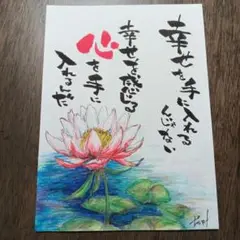 幸せを手に入れる
んじゃない
幸せを感じる
心を手に
入れるんだ